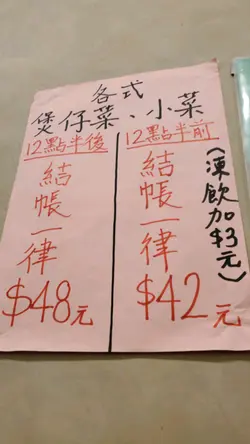 各式
煲仔菜、小菜
12點半前
結帳一律
$42元
(凍飲加$3元)
12點半後
結帳一律
$48元